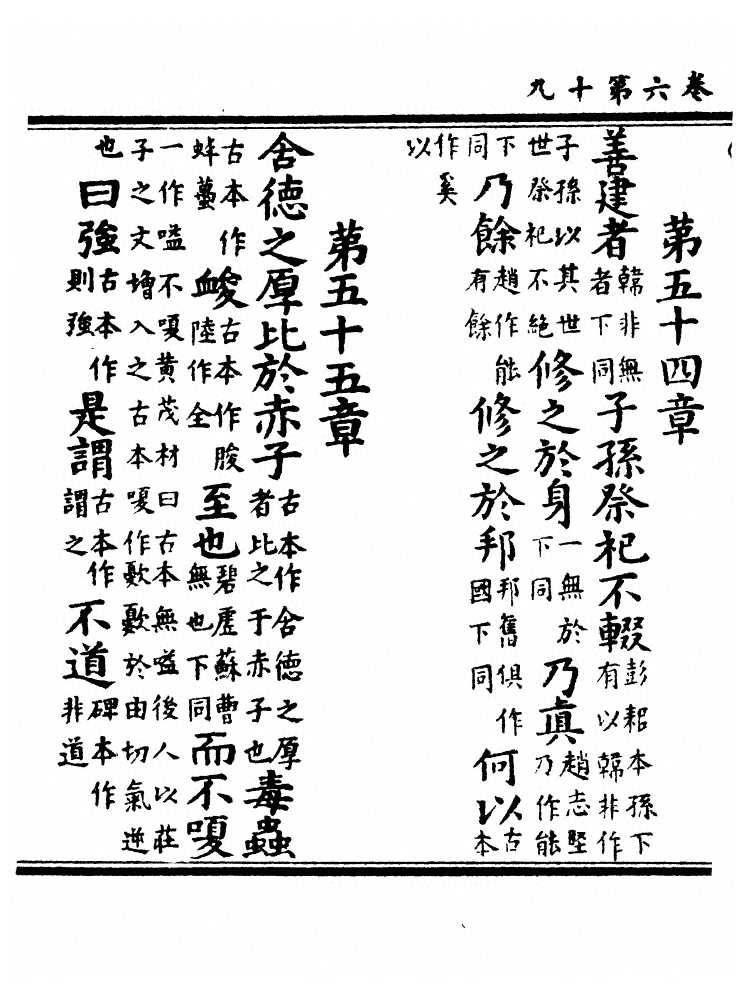 卷六第十九
第五十四章
善建者韓非無者下同子孫祭祀不輟彭耜本孫下有以韓非作
子孫以其世世祭祀不絕修之於身一無於下同乃真趙志堅乃作能
下同乃餘趙作能有餘修之於邦邦舊俱作國下同何以古本
作奚以
第五十五章
含德之厚比於赤子古本作含德之厚者比之于赤子也毒蟲
古本作蚌蠆䘒古本作朘陸作全至也碧虛蘇曹無也下同而不嗄
一作嗌不嗄黃茂材曰古本無嗌後人以莊子之文增入之古本嗄作於由切氣逆
也曰強古本作則強是謂古本作謂之不道碑本作非道